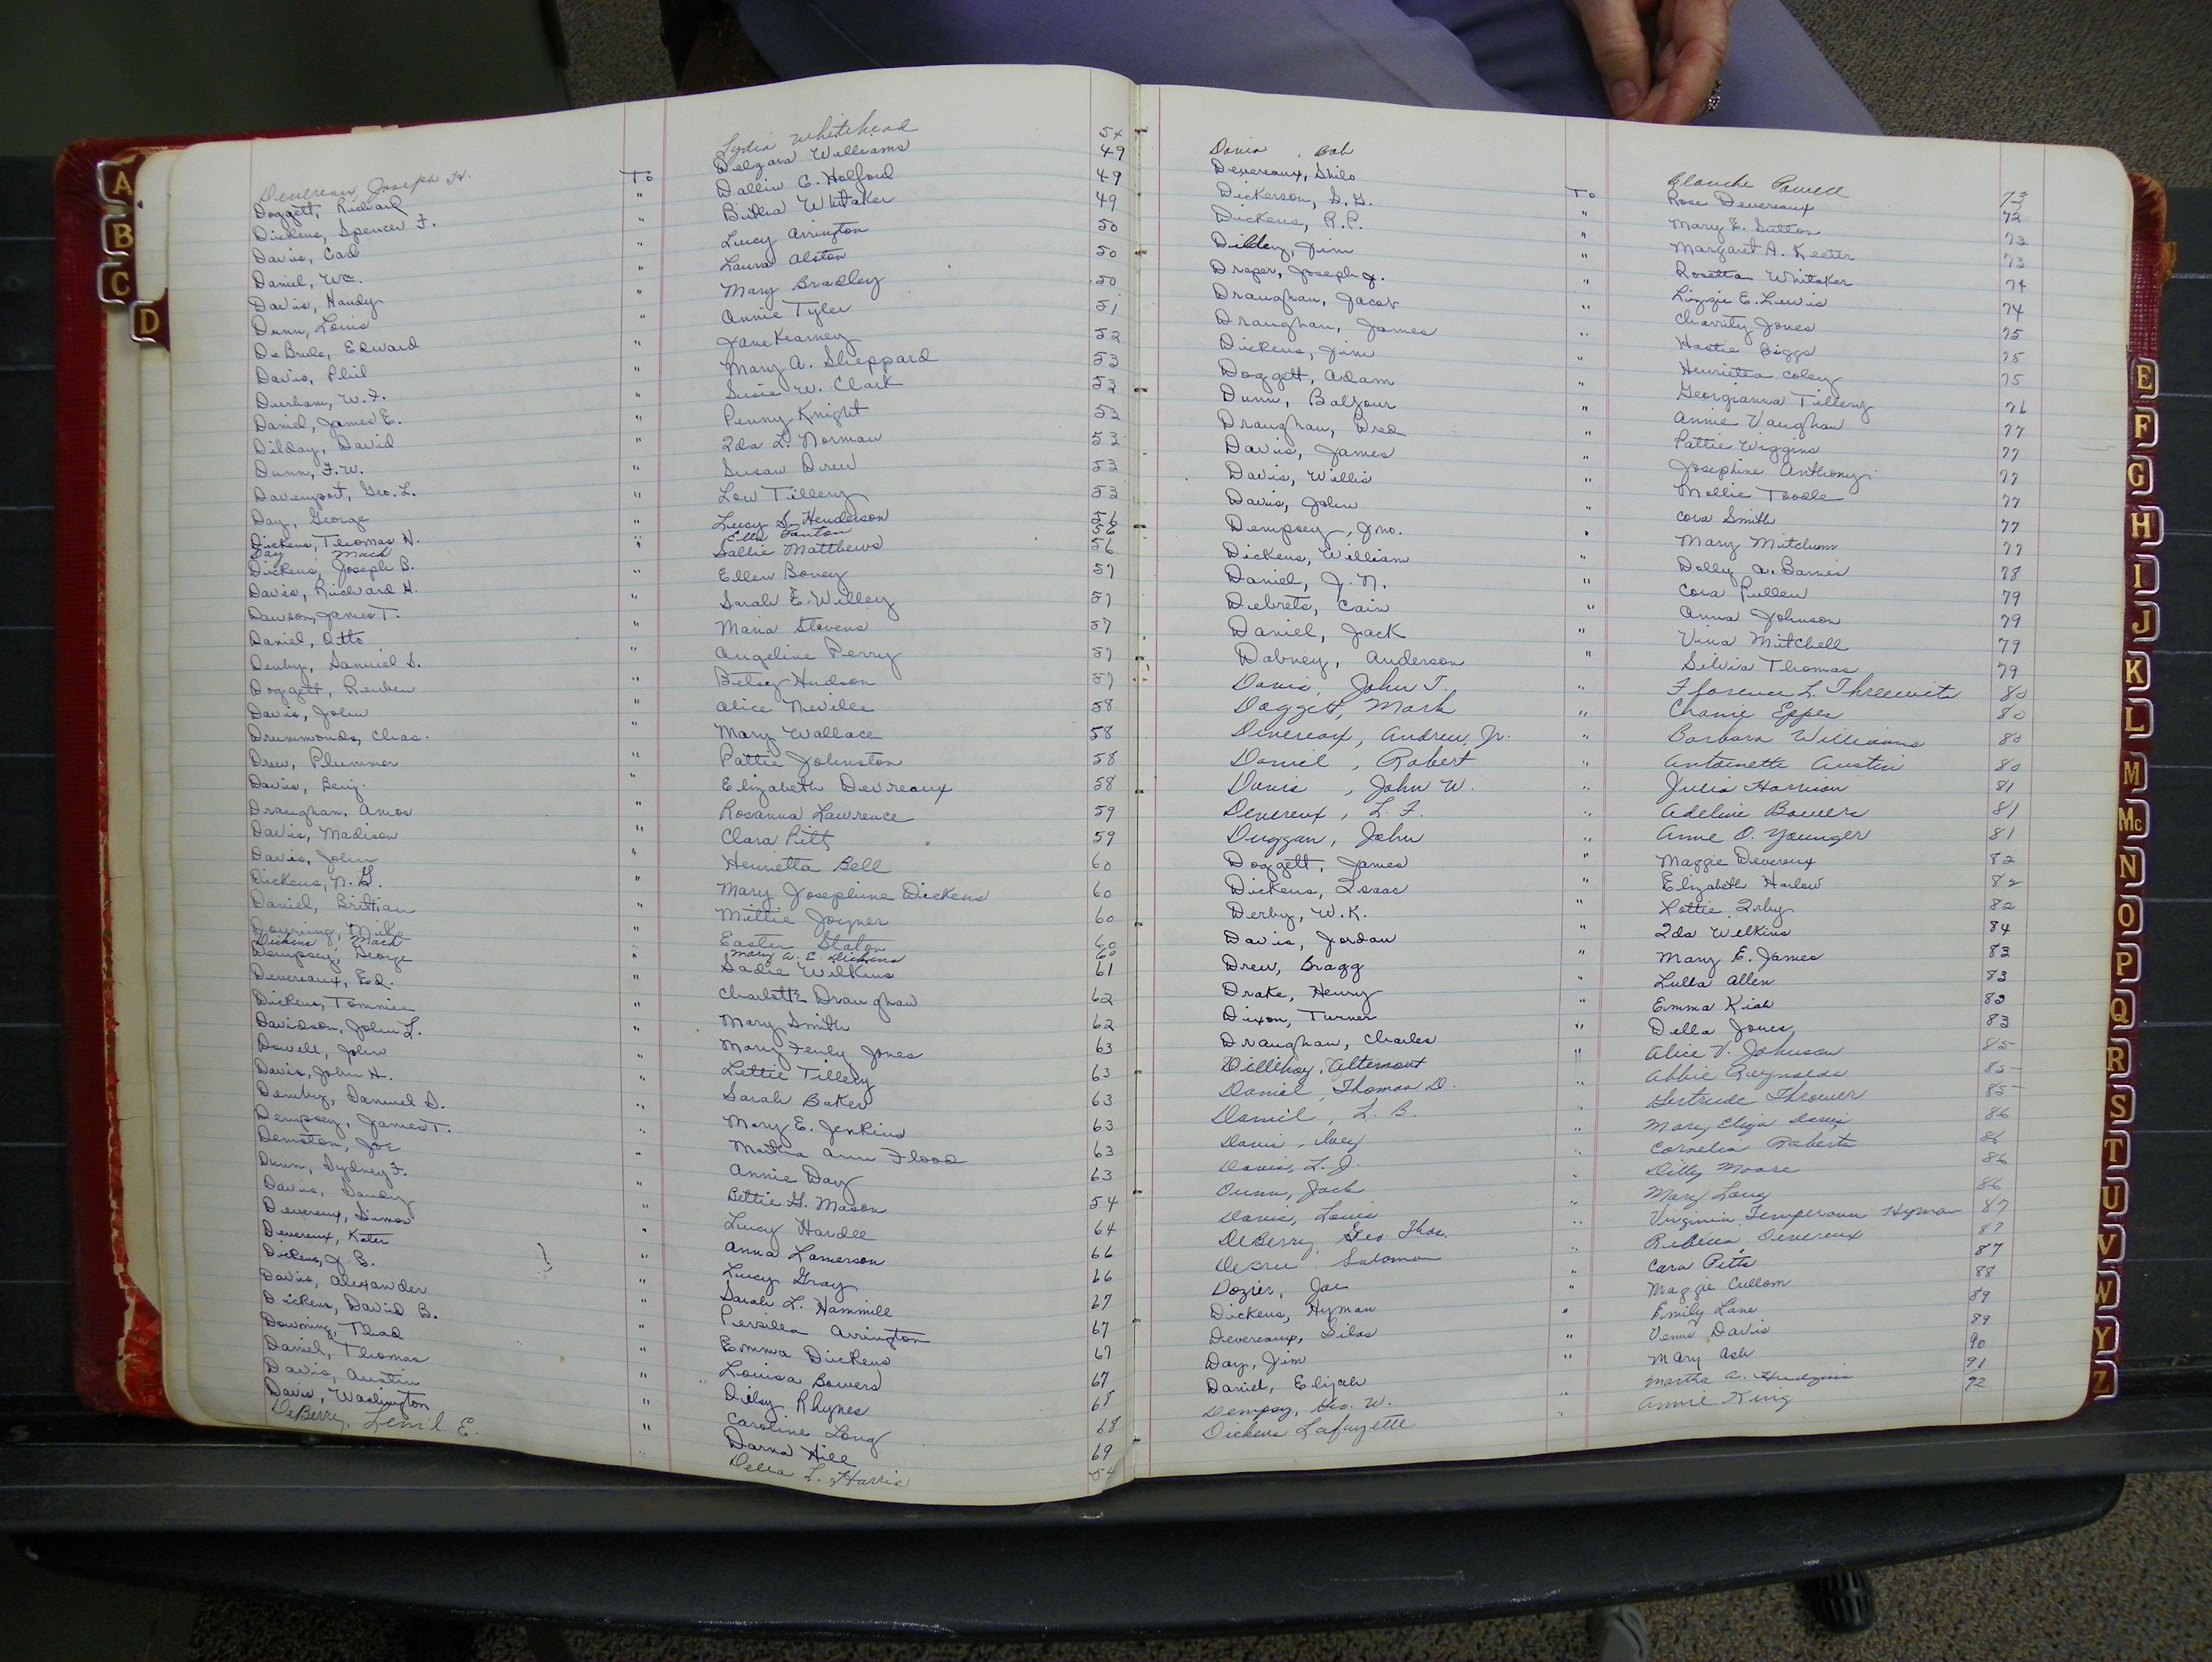 A
B
C
D
Devereau, Joseph H. Lydia Whitehead 54
Doggett, Richard To Delzara Williams 49
Dickens, Spencer F. " Dallie C. Holford 49
Davis, Cad " Bitha Whitaker 49
Daniel, Wm. " Lucy Arrington 50
Davis, Handy " Laura Alston 50
Dunn, Louis " Mary Bradley 50
DeBrule, Edward " Annie Tyler 51
Davis, Phil " Jane Kearney 52
Durham, W. F. " Mary A. Sheppard 53
Daniel, James E. " Susie W. Clark 53
Dilday, David " Penny Knight 53
Dunn, F. W. " Ida L. Norman 53
Davenport, Geo. L. " Susan Drew 53
Day, George " Lou Tillery 53
Dickens, Thomas N. " Lucy S. Henderson 56
Day, Mack " Ella 56
Dickens, Joseph B. " Sallie Matthews 56
Davis, Richard H. " Ellen Boney 57
Dawson, James T. " Sarah E. Willey 57
Daniel, Otto " Maria Stevens 57
Denby, Samuel S. " Angeline Perry 57
Doggett, Reuben " Betsey Hudson 57
Davis, John " Alice Neville 58
Drummonds, Chas. " Mary Wallace 58
Drew, Plummer " Pattie Johnston 58
Davis, Benj. " Elizabeth Devreaux 58
Draughan, Amos " Rosanna Lawrence 59
Davis, Madison " Clara Pitt 59
Davis, John " Henrietta Bell 60
Dickens, N. G. " Mary Josephine Dickens 60
Daniel, Brittian " Mittie Joyner 60
Downing, Mike " Easter Staton 60
Dickens, Mack " Mary A. E. Dickens 60
Dempsey, George " Sadie Wilkins 61
Devereaux, Ed. " Charlotte Draughan 62
Dickens, Tommie " Mary Smith 62
Davidson, John L. " Mary Fenly Jones 63
Dowell, John " Lettie Tillery 63
Davis, John H. " Sarah Baker 63
Demby, Samuel S. " Mary E. Jenkins 63
Dempsey, James T. " Martha Ann Flood 63
Demston, Joe " Annie Day 63
Dunn, Sydney F. " Bettie G. Mason 54
Davis, Sandy " Lucy Hardee 64
Devereux, Simon " Anna Lamerson 66
Devereux, Kater " Lucy Gray 66
Dickens, J. B. " Sarah L. Hammill 67
Davis, Alexander " Persilla Arrington 67
Dickens, David B. " Emma Dickens 67
Downing, Thad " Louisa Bowers 67
Daniel, Thomas " Dilsy Rhynes 68
Davis, Austin " Caroline Long 68
Davis, Washington " Darna Hill 69
DeBerry, Lem'l E. " Della L. Harris 54
Davis, Bob Blanche Powell 73
Devereaux, Shilo To Rose Devereaux 72
Dickerson, S. G. " Mary E. Sutton 73
Dickens, R. P. " Margaret A. Keeter 73
Dilday, Jim " Rosetta Whitaker 74
Draper, Joseph J. " Lizzie E. Lewis 74
Draughan, Jacob " Charity Jones 75
Draughan, James " Hastie Biggs 75
Dickens, Jim " Henrietta Coley 75
Doggett, Adam " Georgianna Tillery 76
Dunn, Balfour " Annie Vaughan 77
Draughan, Dred " Pattie Wiggins 77
Davis, James " Josephine Anthony 77
Davis, Willis " Mollie Toodle 77
Davis, John " Cora Smith 77
Dempsey, Jno. " Mary Mitchum 77
Dickens, William " Dolly A. Barnes 78
Daniel, J. N. " Cora Pullen 79
Debrets, Cain " Anna Johnson 79
Daniel, Jack " Vina Mitchell 79
Dabney, Anderson " Silvia Thomas 79
Davis, John T. " Florence L. Threewits 80
Doggett, Mark " Chanie Eppes 80
Devereax, Andrew, Jr. " Barbara Williams 80
Daniel, Robert " Antoinette Austin 80
Davis, John W. " Julia Harrison 81
Devereux, L. F. " Adeline Bowers 81
Duggan, John " Anne O. Younger 81
Doggett, James " Maggie Devereux 82
Dickens, Isaac " Elizabeth Harlow 82
Derby, W. K. " Lottie Irby 82
Davis, Jordan " Ida Wilkins 84
Drew, Bragg " Mary E. James 83
Drake, Henry " Lulla Allen 83
Dixon, Turner " Emma Kiah 83
Draughan, Charles " Della Jones 83
Dillihay, Altemont " Alice V. Johnson 85
Daniel, Thomas D. " Abbie Reynolds 85
Daniel, L. B. " Gertrude Thrower 85
Davis, " Mary Eliza Davis 86
Davis, L. J. " Cornelia Roberts 86
Dunn, Jack " Dilly Moore 86
Davis, Louis " Mary Long 86
DeBerry, Geo. Thos. " Virginia Temperance Hyman 87
Solomon " Rebecca Devereux 87
Dozier, Joe " Cara Pitts 87
Dickens, Hyman " Maggie Cullom 88
Devereaux, Silas " Emily Lane 89
Day, Jim " Venus Davis 89
Daniel, Elijah " Mary Ash 90
Dempsy, Geo. W. " Martha A. Hudgins 91
Dickens Lafayette " Annie King 92
E
F
G
H
I
J
K
L
M
Mc
N
O
P
Q
R
S
T
U
V
W
Y
Z